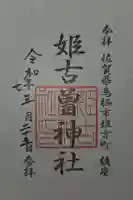 奉拝 佐賀県鳥栖市姫方町 鎮座
姫古曽神社
令和七年五月二十一日 参拝